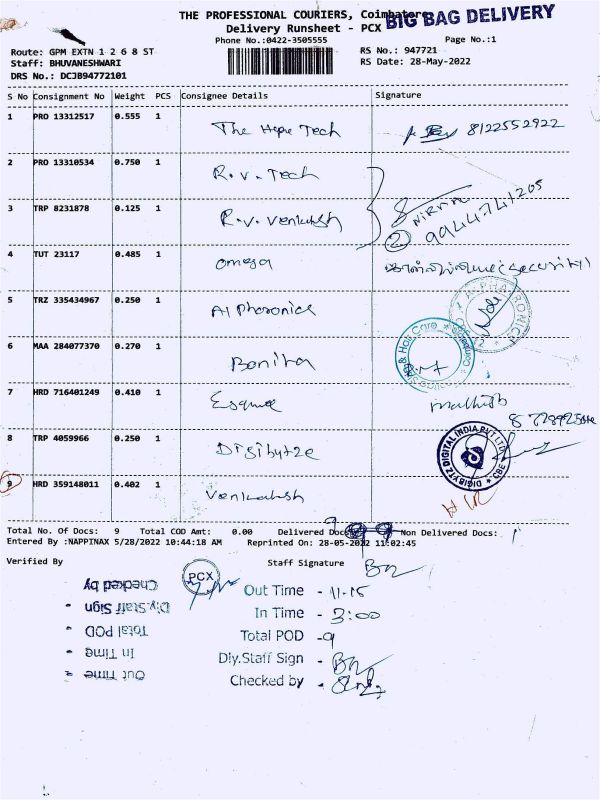 THE PROFESSIONAL COURIERS, Coimbatore
BIG BAG DELIVERY
Delivery Runsheet - PCX
Phone No.:0422-3505555
Page No.:1
Route: GPM EXTN 1 2 6 8 ST
RS No.: 947721
Staff: BHUVANESHWARI
RS Date: 28-May-2022
DRS No.: DCJB94772101
S No Consignment No Weight PCS Consignee Details Signature
1 PRO 13312517 0.555 1 The Hope Tech 8122552922
2 PRO 13310534 0.750 1 R.V. Tech
3 TRP 8231878 0.125 1 R.V. Venkatesh 2 9944741205
4 TUT 23117 0.485 1 Omega (Security)
5 TRZ 335434967 0.250 1 Alphoronics ALPHATRONICS
6 MAA 284077370 0.270 1 Bonita & Hair Care
7 HRD 716401249 0.410 1 Esquire
8 TRP 4059966 0.250 1 Digibytze DIGIBYTZ DIGITAL INDIA PVT LTD CBE
9 HRD 359148011 0.402 1 Venkatesh
Total No. Of Docs: 9 Total COD Amt: 0.00 Delivered Docs: 9 Non Delivered Docs:
Entered By :NAPPINAX 5/28/2022 10:44:18 AM Reprinted On: 28-05-2022 11:02:45
Verified By
Staff Signature
PCX
Out Time - 11.15
In Time - 3:00
Total POD - 9
Dly.Staff Sign -
Checked by -
Checked by
Dly.Staff Sign -
Total POD -
In Time -
Out Time -